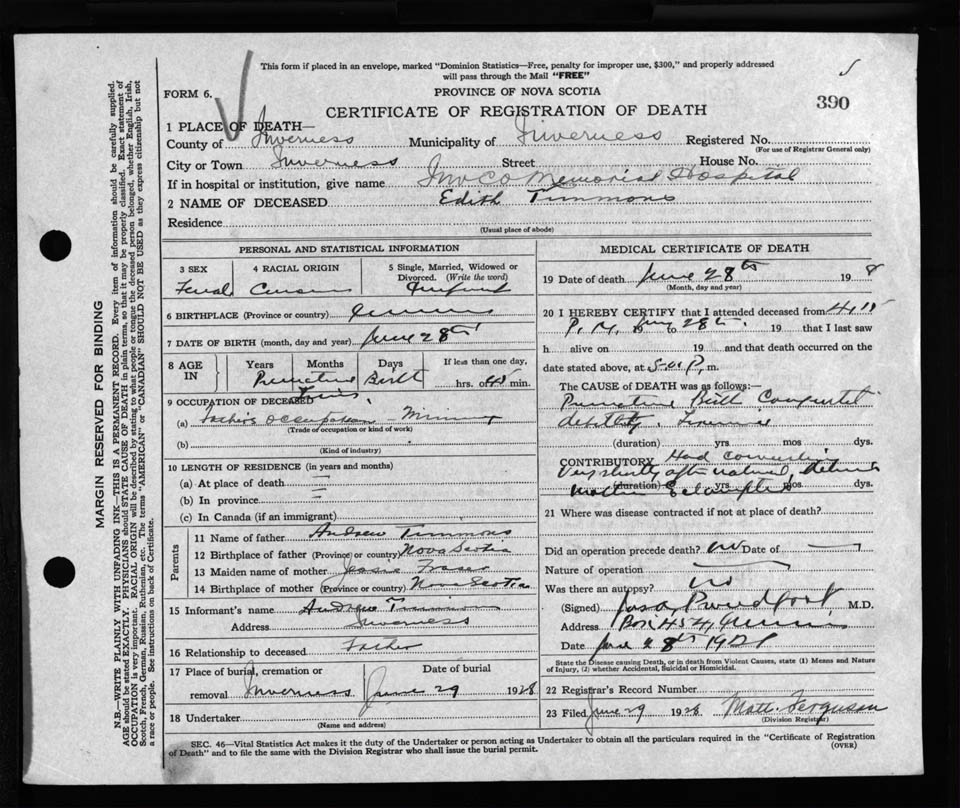 This form if placed in an envelope, marked "Dominion Statistics—Free, penalty for improper use, $300," and properly addressed
will pass through the Mail "FREE"
FORM 6.
PROVINCE OF NOVA SCOTIA
390
CERTIFICATE OF REGISTRATION OF DEATH
1 PLACE OF DEATH—
County of Inverness Municipality of Inverness Registered No.
(For use of Registrar General only)
City or Town Inverness Street House No.
If in hospital or institution, give name Inv Co Memorial Hospital
2 NAME OF DECEASED Edith Timmons
Residence
(Usual place of abode)
PERSONAL AND STATISTICAL INFORMATION
3 SEX 4 RACIAL ORIGIN 5 Single, Married, Widowed or
Divorced. (Write the word)
6 BIRTHPLACE (Province or country)
7 DATE OF BIRTH (month, day and year) June 28th
8 AGE IN Years Months Days If less than one day,
Premature Birth hrs. min.
9 OCCUPATION OF DECEASED
(a) Father's occupation Mining
(Trade of occupation or kind of work)
(b)
(Kind of industry)
10 LENGTH OF RESIDENCE (in years and months)
(a) At place of death
(b) In province
(c) In Canada (if an immigrant)
Parents
11 Name of father Andrew Timmons
12 Birthplace of father (Province or country) Nova Scotia
13 Maiden name of mother Jessie Fraser
14 Birthplace of mother (Province or country) Nova Scotia
15 Informant's name Andrew Timmons
Address Inverness
16 Relationship to deceased Father
17 Place of burial, cremation or Date of burial
removal Inverness June 29 1928
18 Undertaker
(Name and address)
MEDICAL CERTIFICATE OF DEATH
19 Date of death June 28th 1928
(Month, day and year)
20 I HEREBY CERTIFY that I attended deceased from
P.M. to 28th 19 that I last saw
h alive on 19 and that death occurred on the
date stated above, at P.m.
The CAUSE of DEATH was as follows:
Premature Birth
debility
(duration) yrs mos dys.
CONTRIBUTORY Had
Very shortly after
(duration) yrs mos dys.
Mother
21 Where was disease contracted if not at place of death?
Did an operation precede death? no Date of
Nature of operation
Was there an autopsy? no
(Signed) M.D.
Address Box 454
Date June 28th 1928
State the Disease causing Death, or in death from Violent Causes, state (1) Means and Nature
of Injury, (2) whether Accidental, Suicidal or Homicidal.
22 Registrar's Record Number
23 Filed June 29 1928 Matt. Ferguson
(Division Registrar)
SEC. 46—Vital Statistics Act makes it the duty of the Undertaker or person acting as Undertaker to obtain all the particulars required in the "Certificate of Registration
of Death" and to file the same with the Division Registrar who shall issue the burial permit.
(OVER)
MARGIN RESERVED FOR BINDING
N.B.—WRITE PLAINLY WITH UNFADING INK—THIS IS A PERMANENT RECORD. Every item of information should be carefully supplied.
AGE should be stated EXACTLY. PHYSICIANS should STATE CAUSE OF DEATH in plain terms, so that it may be properly classified. Exact statement of
OCCUPATION is very important. RACIAL ORIGIN will be described by stating to what people or tongue the deceased person belonged, whether English, Irish,
Scotch, French, German, Russian, Ruthenian, etc. The terms "AMERICAN" or "CANADIAN" SHOULD NOT BE USED as they express citizenship but not
a race or people. See instructions on back of Certificate.